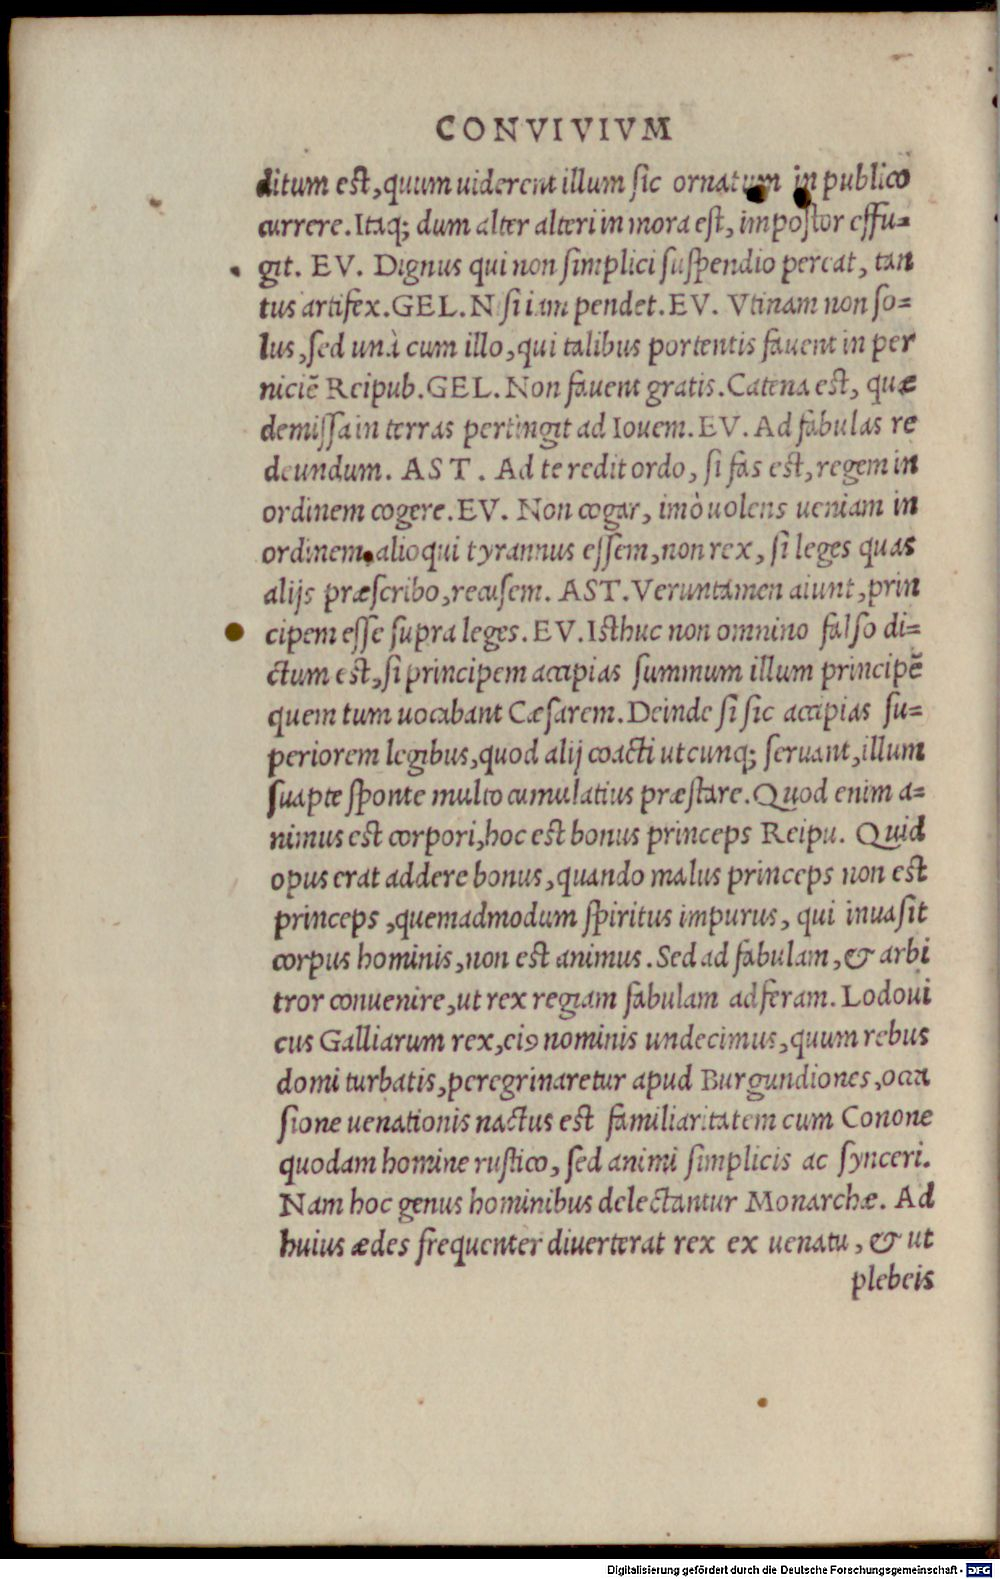 CONVIVIVM
ditum est, quum uiderent illum sic ornatum in publico
currere. Itaq; dum alter alteri in mora est, impostor effu=
git. EV. Dignus qui non simplici suspendio pereat, tan
tus artifex. GEL. Nisi iam pendet. EV. Vtinam non so=
lus, sed unà cum illo, qui talibus portentis fauent in per
niciē Reipub. GEL. Non fauent gratis. Catena est, quæ
demissa in terras pertingit ad Iouem. EV. Ad fabulas re
deundum. AST. Ad te redit ordo, si fas est, regem in
ordinem cogere. EV. Non cogar, imò uolens ueniam in
ordinem, alioqui tyrannus essem, non rex, si leges quas
alijs præscribo, recusem. AST. Veruntamen aiunt, prin
cipem esse supra leges. EV. Isthuc non omnino falso di=
ctum est, si principem accipias summum illum principē
quem tum uocabant Cæsarem. Deinde si sic accipias su=
periorem legibus, quod alij coacti utcunq; seruant, illum
suapte sponte multo cumulatius præstare. Quod enim a=
nimus est corpori, hoc est bonus princeps Reipu. Quid
opus erat addere bonus, quando malus princeps non est
princeps, quemadmodum spiritus impurus, qui inuasit
corpus hominis, non est animus. Sed ad fabulam, & arbi
tror conuenire, ut rex regiam fabulam adferam. Lodoui
cus Galliarum rex, eiꝰ nominis undecimus, quum rebus
domi turbatis, peregrinaretur apud Burgundiones, occa
sione uenationis nactus est familiaritatem cum Conone
quodam homine rustico, sed animi simplicis ac synceri.
Nam hoc genus hominibus delectantur Monarchæ. Ad
huius ædes frequenter diuerterat rex ex uenatu, & ut
plebeis
Digitalisierung gefördert durch die Deutsche Forschungsgemeinschaft - DFG